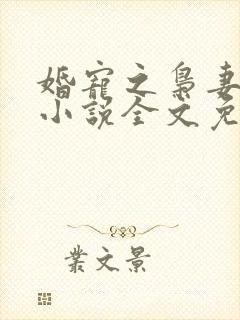 婚宠之枭妻
小说全文免
叢文景